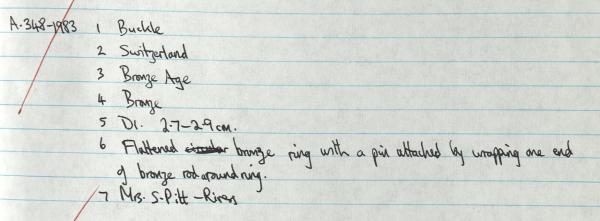 A.348-1983 1 Buckle
2 Switzerland
3 Bronze Age
4 Bronze
5 Di. 2.7-2.9cm.
6 Flattened circular bronze ring with a pin attached by wrapping one end
of bronze rod around ring.
7 Mrs. S. Pitt-Rivers